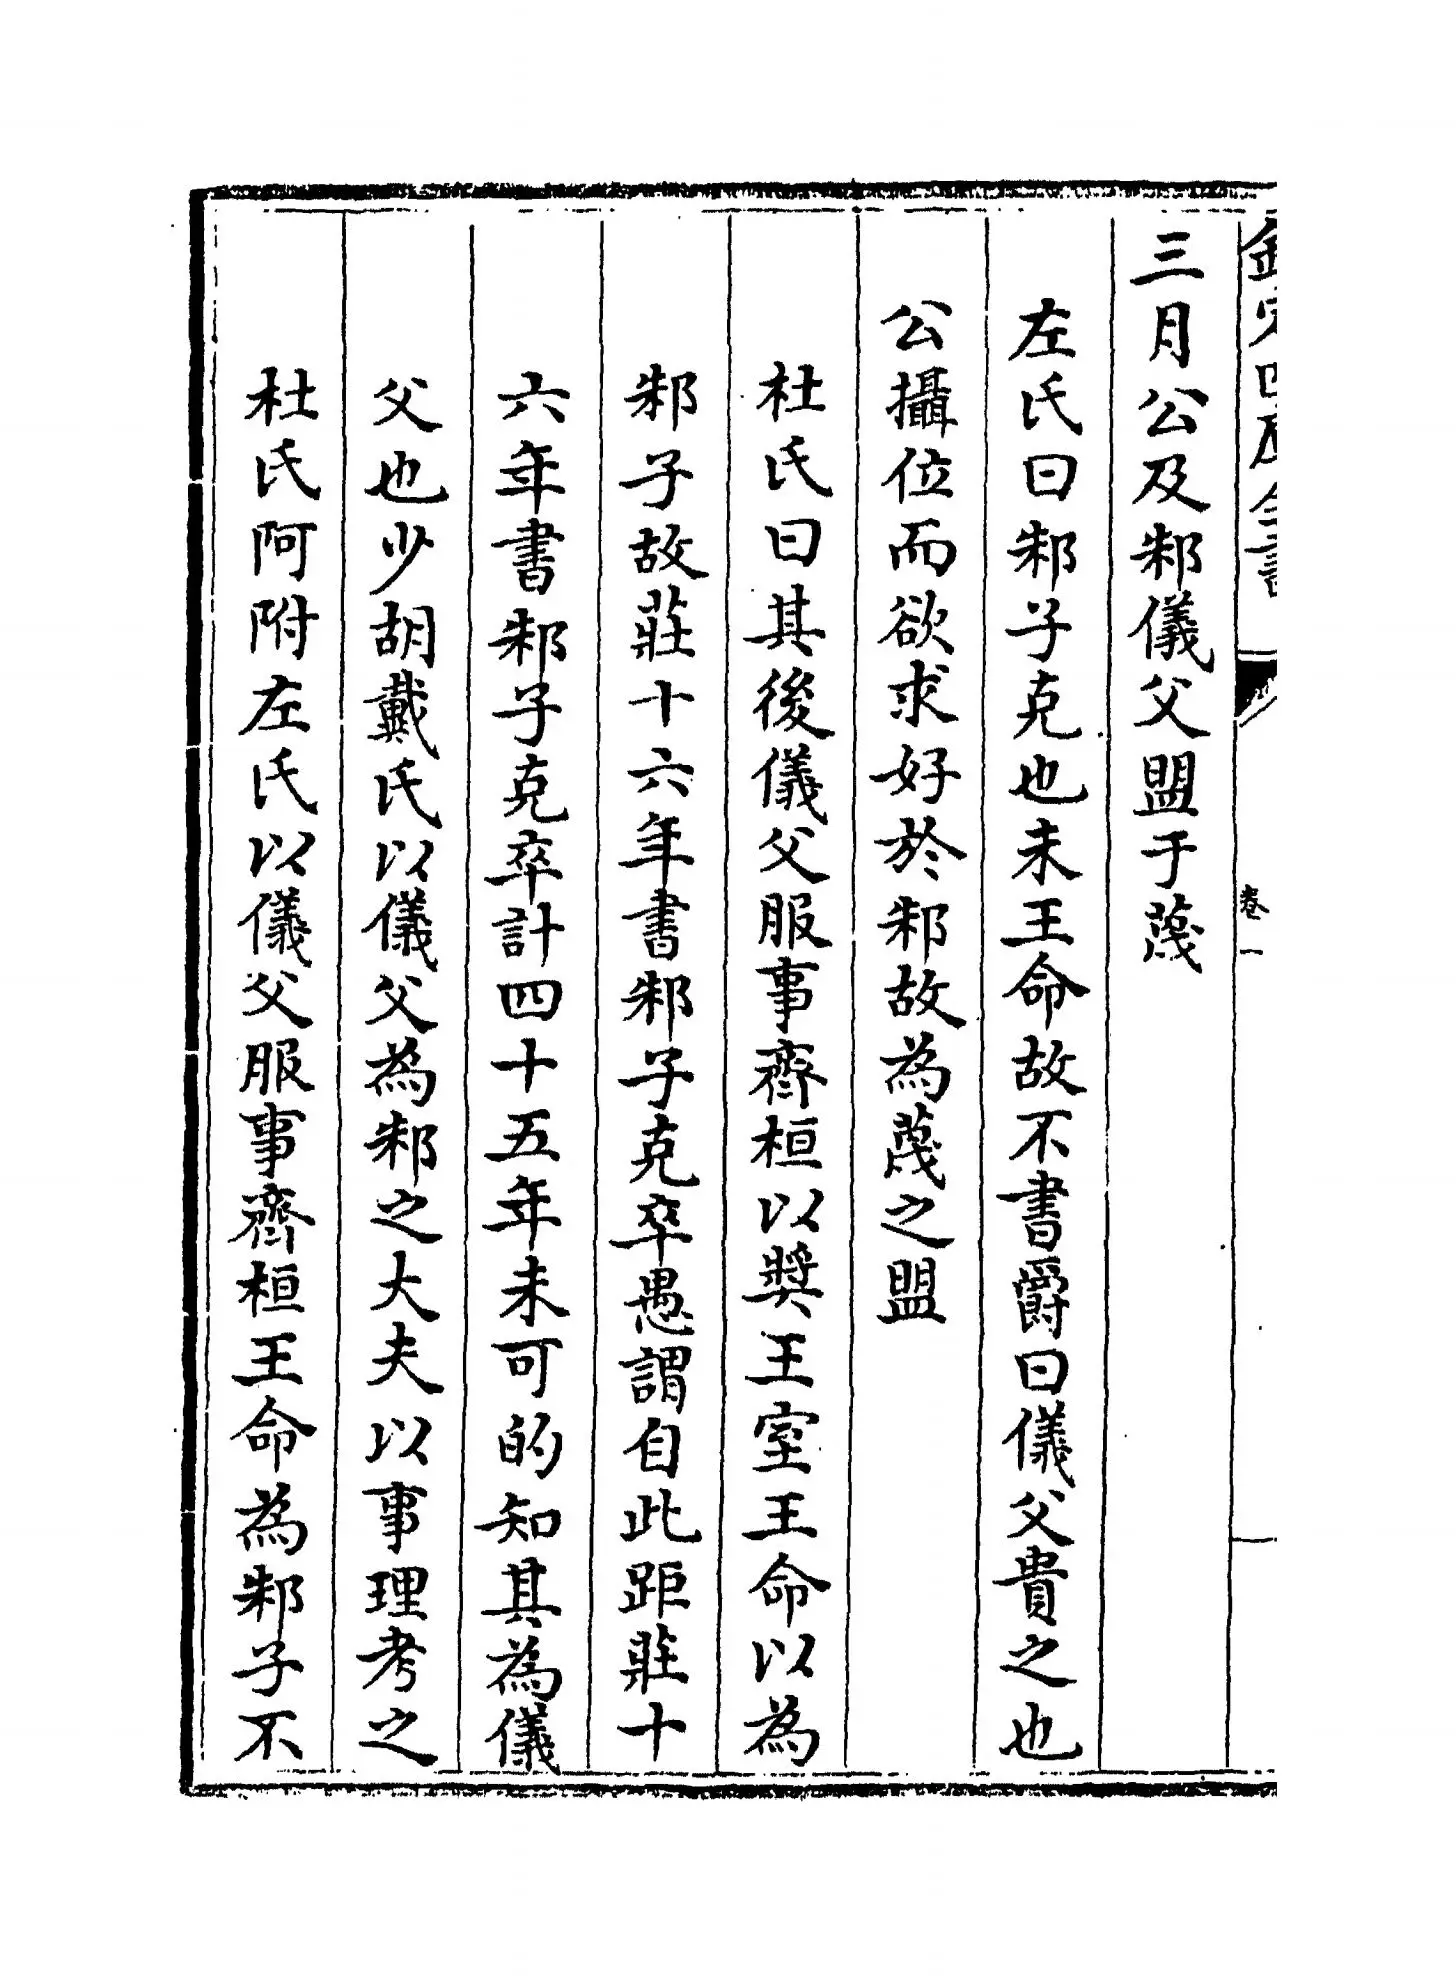 欽定四庫全書
卷一
三月公及邾儀父盟于蔑
左氏曰邾子克也未王命故不書爵曰儀父貴之也
公攝位而欲求好於邾故為蔑之盟
杜氏曰其後儀父服事齊桓以奬王室王命以為
邾子故莊十六年書邾子克卒愚謂自此距莊十
六年書邾子克卒計四十五年未可的知其為儀
父也少胡戴氏以儀父為邾之大夫以事理考之
杜氏阿附左氏以儀父服事齊桓王命為邾子不